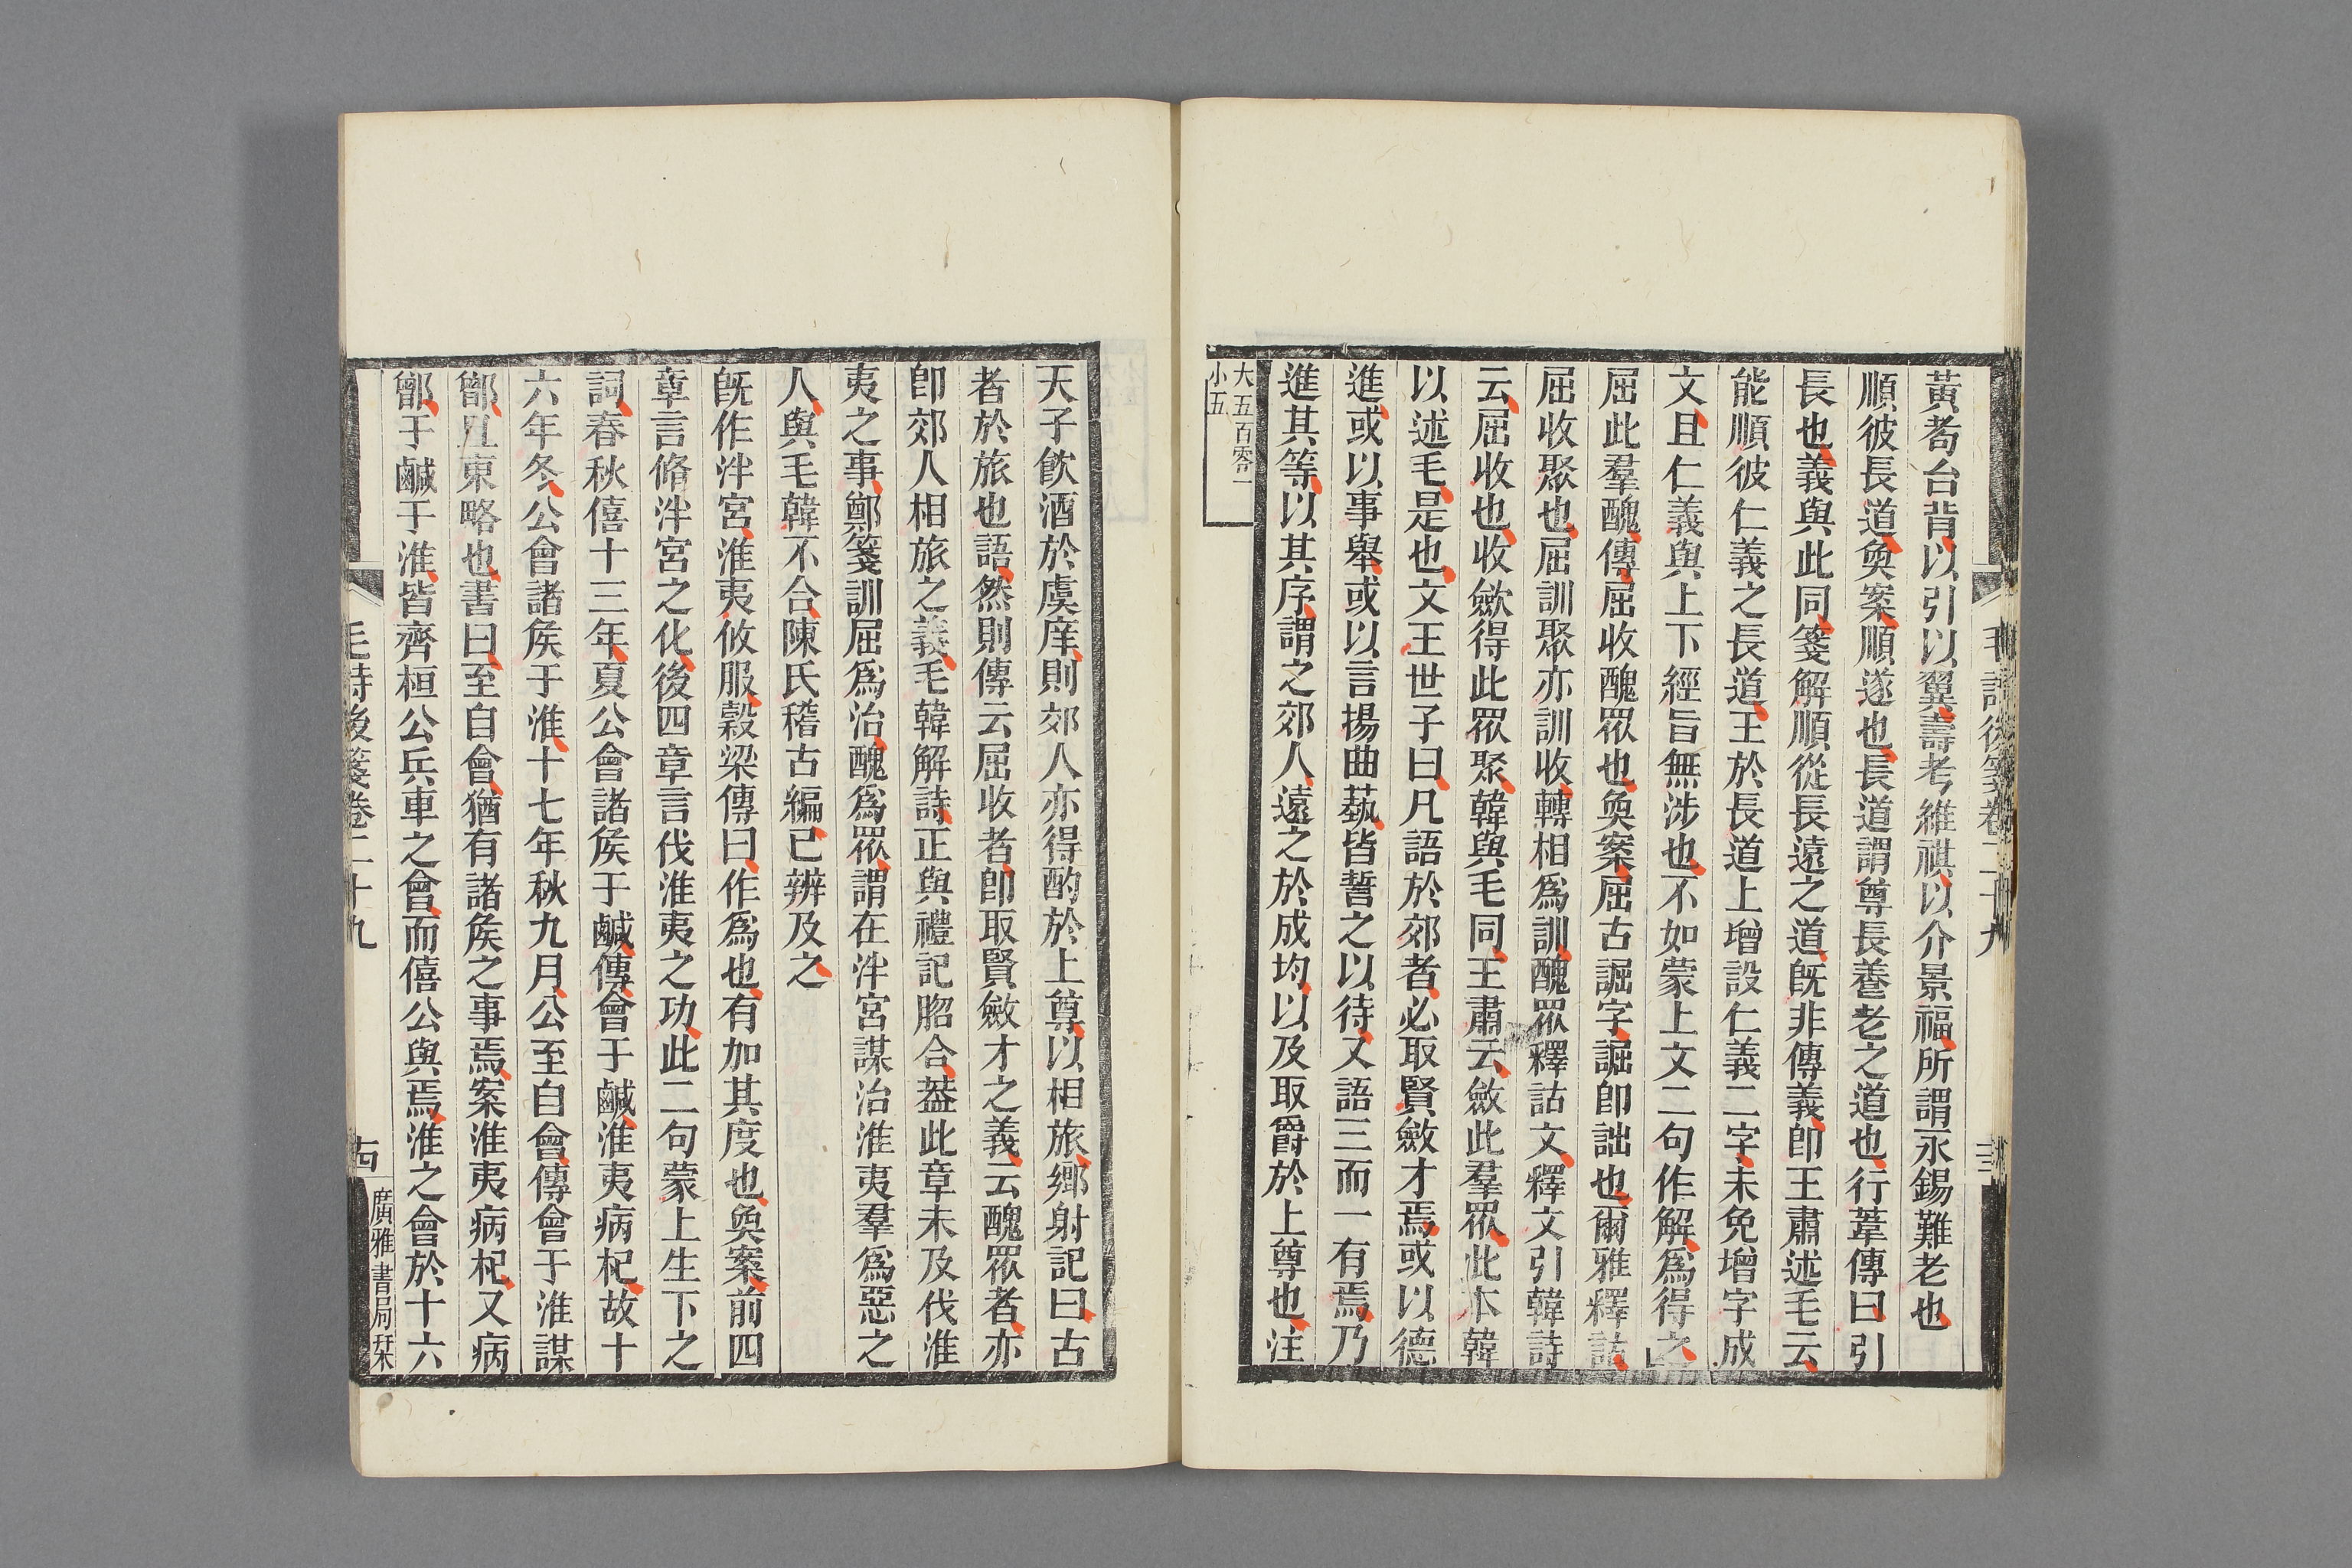 毛詩後箋卷二十九
黃耇台背以引以翼壽考維祺以介景福所謂永錫難老也
順彼長道奐案順遂也長道謂尊長養老之道也行葦傳曰引
長也義與此同箋解順從長遠之道旣非傳義卽王肅述毛云
能順彼仁義之長道王於長道上增設仁義二字未免增字成
文且仁義與上下經旨無涉也不如蒙上文二句作解爲得之
屈此羣醜傳屈收醜眾也奐案屈古誳字誳卽詘也爾雅釋詁
屈收聚也屈訓聚亦訓收轉相爲訓醜眾釋詁文釋文引韓詩
云屈收也收歛得此眾聚韓與毛同王肅云斂此羣眾此本韓
以述毛是也文王世子曰凡語於郊者必取賢斂才焉或以德
進或以事舉或以言揚曲藝皆誓之以待又語三而一有焉乃
進其等以其序謂之郊人遠之於成均以及取爵於上尊也注
大五百零一
小五
天子飮酒於虞庠則郊人亦得酌於上尊以相旅鄉射記曰古
者於旅也語然則傳云屈收者卽取賢斂才之義云醜眾者亦
卽郊人相旅之義毛韓解詩正與禮記脗合葢此章未及伐淮
夷之事鄭箋訓屈爲治醜爲眾謂在泮宮謀治淮夷羣爲惡之
人與毛韓不合陳氏稽古編已辨及之
旣作泮宮淮夷攸服穀梁傳曰作爲也有加其度也奐案前四
章言脩泮宮之化後四章言伐淮夷之功此二句蒙上生下之
詞春秋僖十三年夏公會諸矦于鹹傳會于鹹淮夷病杞故十
六年冬公會諸矦于淮十七年秋九月公至自會傳會于淮謀
鄫且東略也書曰至自會猶有諸矦之事焉案淮夷病杞又病
鄫于鹹于淮皆齊桓公兵車之會而僖公與焉淮之會於十六
毛詩後箋卷二十九
古
廣雅書局栞